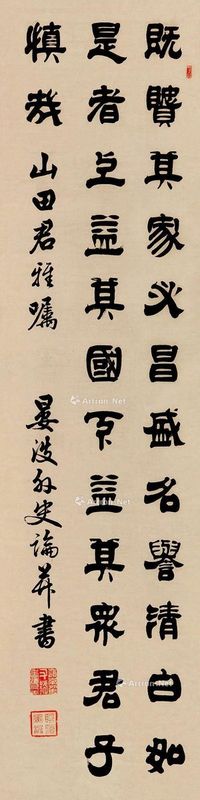 既其家必昌盛名譽清白如
是者上益其國下益其眾君子
慎哉 山田君雅囑 晏外史論并書
Artron.Net
Artron.Net